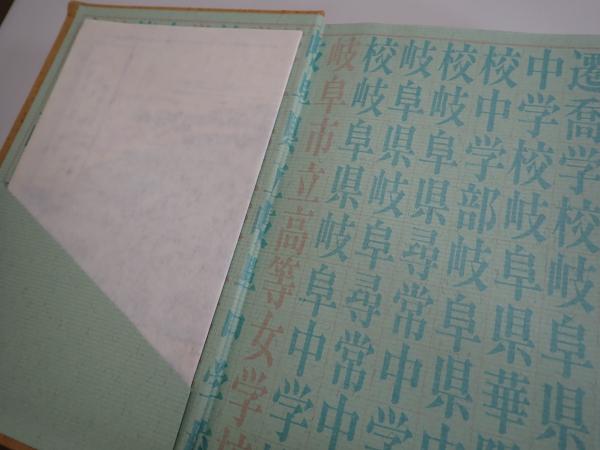 遷喬学校岐阜県
中学校岐阜県華
校中学部岐阜県
校岐阜県尋常中学
岐阜県岐阜尋常中
校岐阜県岐阜中学
岐阜市立高等女学校
岐阜県